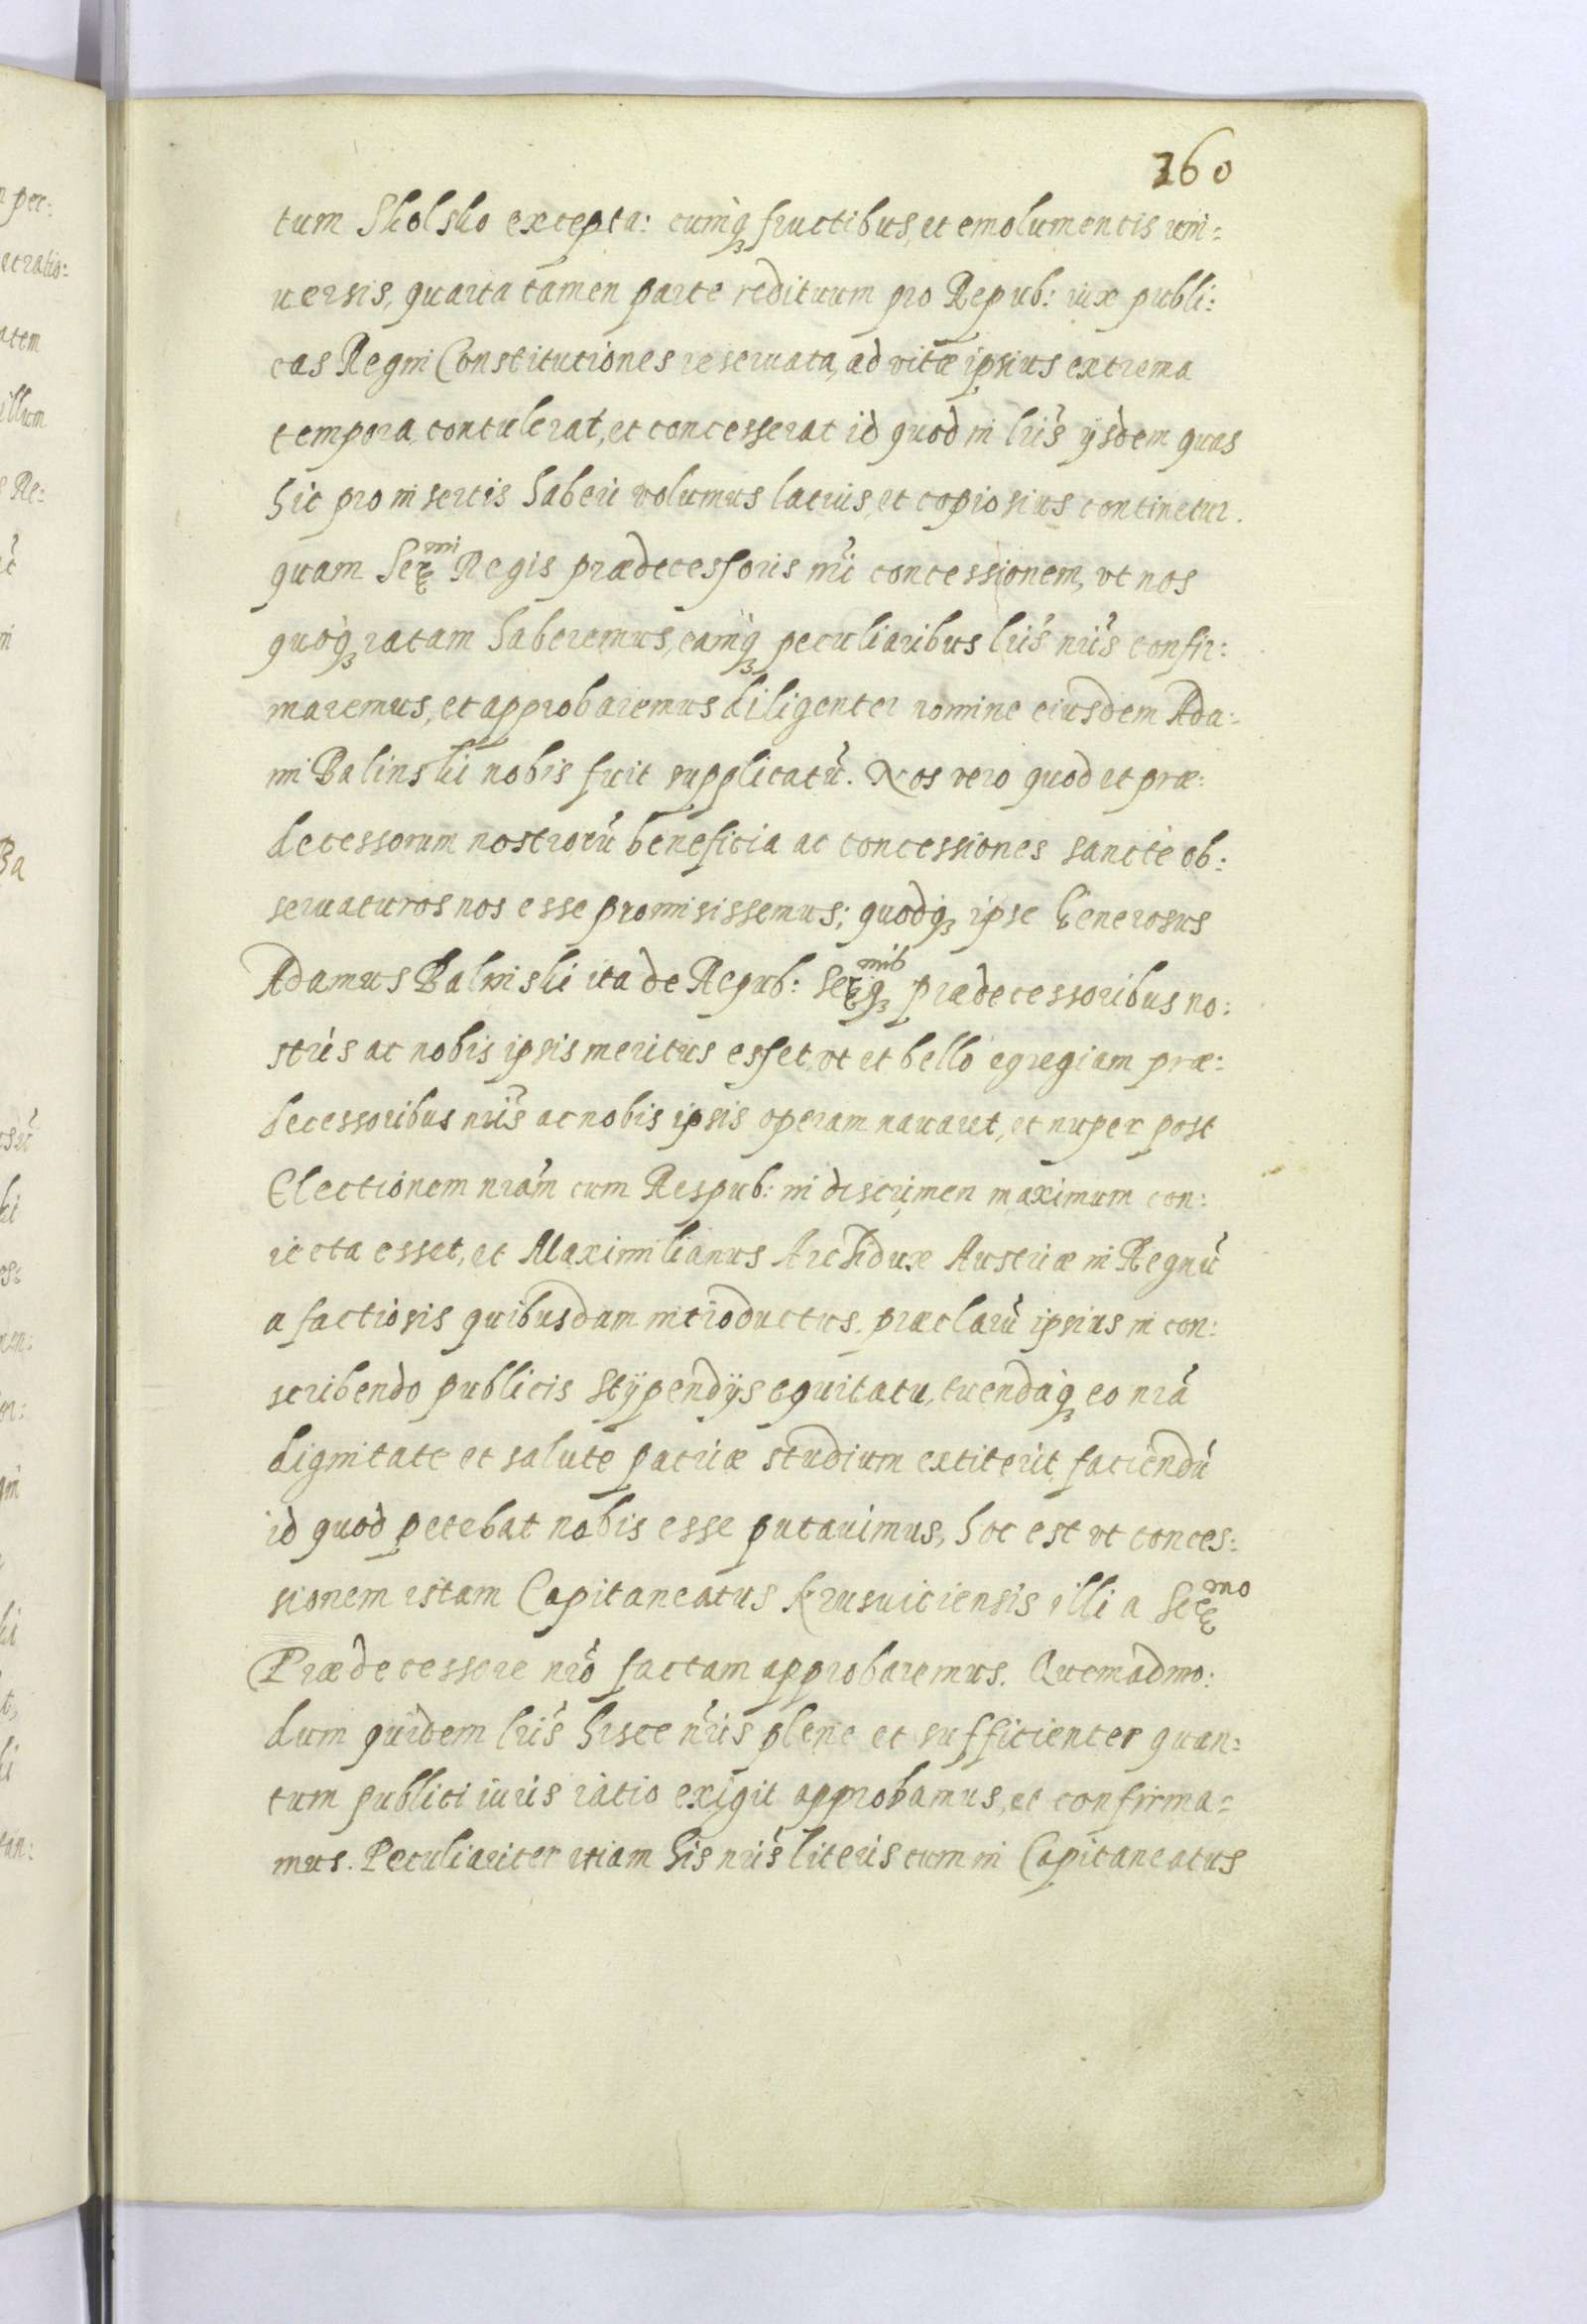 260
tum Skolsko excepta: cumq̃ fructibus, et emolumentis uni:
uersis, quarta tamen parte redituum pro Repub: iux publi:
cas Regni Constitutiones reseruata, ad vitæ ipsius extrema
tempora contulerat, et concesserat id quod in lr̃is ijsdem quas
hic pro insertis haberi volumus latius, et copiosius continetur.
quam Ser^mi Regis prædecessoris nr̃i concessionem, vt nos
quoq̃ ratam haberemus, eamq̃ peculiaribus lr̃is nr̃is confir:
maremus, et approbaremus diligenter nomine eiusdem Ada:
mi Balinski nobis fuit supplicatũ. Nos vero quod et præ:
decessorum nostrorũ beneficia ac concessiones sancte ob:
seruaturos nos esse promisissemus; quodq̃ ipse Generosus
Adamus Balinski ita de Repub: Ser^mib q̃ prædecessoribus no:
stris ac nobis ipsis meritus esset, vt et bello egregiam præ:
decessoribus nr̃is ac nobis ipsis operam nauaret, et nuper post
Electionem nrãm cum Respub: in discrimen maximum con:
iecta esset, et Maximilianus Archidux Austriæ in Regnũ
a factiosis quibusdam introductus, præclarũ ipsius in con:
scribendo publicis stÿpendijs equitatu, tuendaq̃ eo nrã
dignitate et salute patriæ studium extiterit, faciendũ
id quod petebat nobis esse putauimus, hoc est vt conces:
sionem istam Capitaneatus Krusuiciensis illi a Ser^mo
Prædecessore nr̃o factam approbaremus. Quemadmo:
dum quidem lr̃is hisce nr̃is plene et sufficienter quan:
tum publici iuris ratio exigit approbamus, et confirma:
mus. Peculiariter etiam his nr̃is literis cum in Capitaneatus